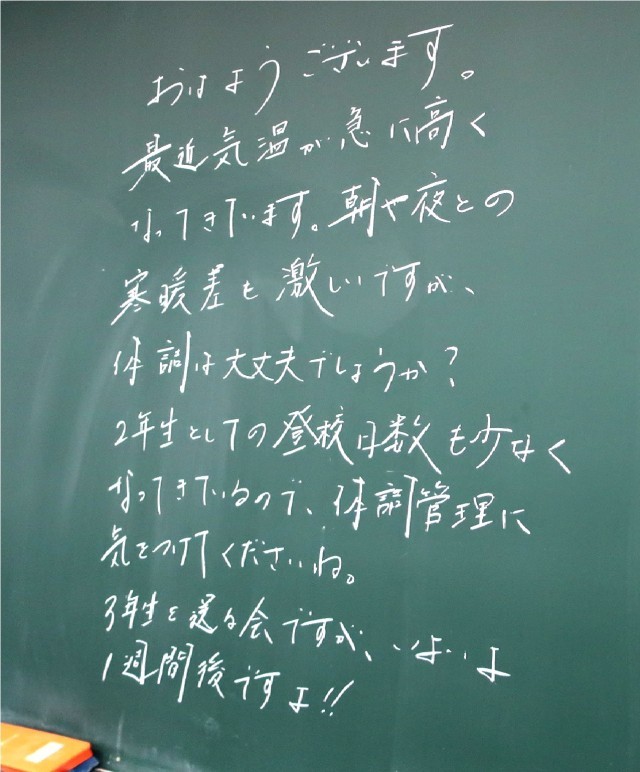 おはようございます。
最近気温が急に高く
なってきています。朝や夜との
寒暖差も激しいですが、
体調は大丈夫でしょうか?
2年生としての登校日数も少なく
なってきているので、体調管理に
気をつけてくださいね。
3年生を送る会ですが、いよいよ
1週間後ですよ!!